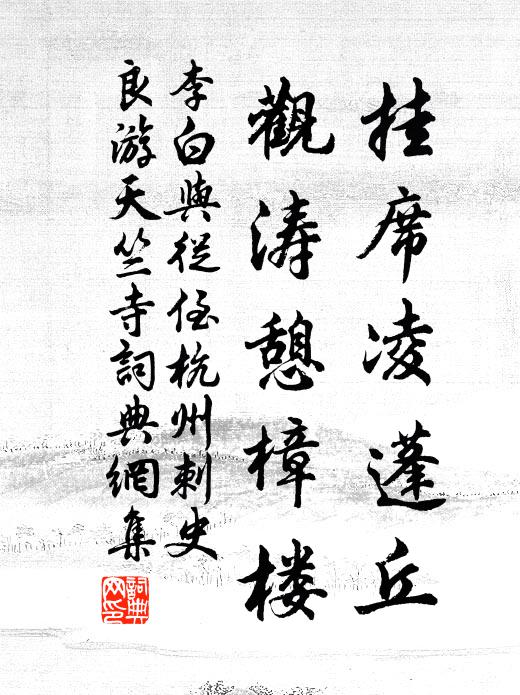 挂席凌蓬丘
觀涛憩樟楼
李白與從侄杭州刺史
良游天竺寺詞典網集
詞典网印